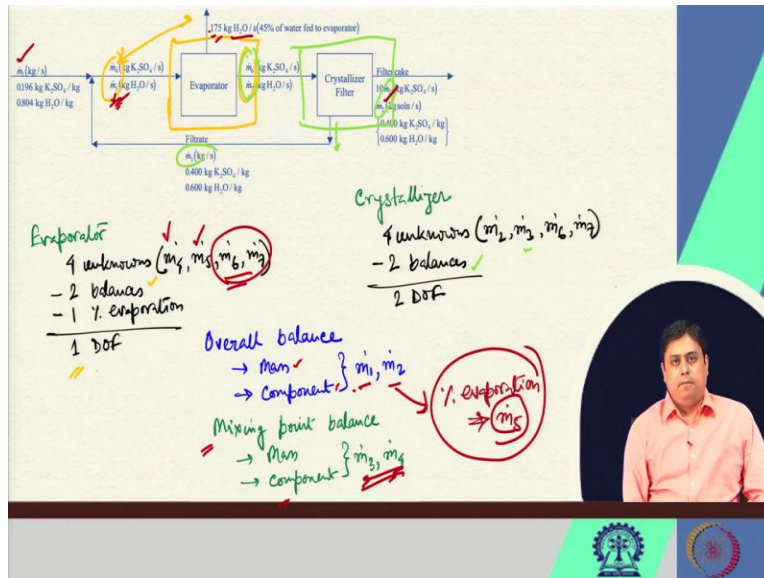 175 kg H₂O/s (45% of water fed to evaporator)
ṁ₁(kg/s)
0.196 kg K₂SO₄/kg
0.804 kg H₂O/kg
ṁ₄(kg K₂SO₄/s)
ṁ₅(kg H₂O/s)
Evaporator
ṁ₆(kg K₂SO₄/s)
ṁ₇(kg H₂O/s)
Crystallizer
Filter
Filter cake
10ṁ₂(kg K₂SO₄/s)
ṁ₂(kg soln/s)
0.400 kg K₂SO₄/kg
0.600 kg H₂O/kg
Filtrate
ṁ₃(kg/s)
0.400 kg K₂SO₄/kg
0.600 kg H₂O/kg
Evaporator
4 unknowns (ṁ₄, ṁ₅, ṁ₆, ṁ₇)
- 2 balances
- 1 % evaporation
1 DOF
Crystallizer
4 unknowns (ṁ₂, ṁ₃, ṁ₆, ṁ₇)
- 2 balances
2 DOF
Overall balance
→ Mass
→ Component } ṁ₁, ṁ₂
% evaporation
⇒ ṁ₅
Mixing point balance
→ Mass
→ Component } ṁ₃, ṁ₄